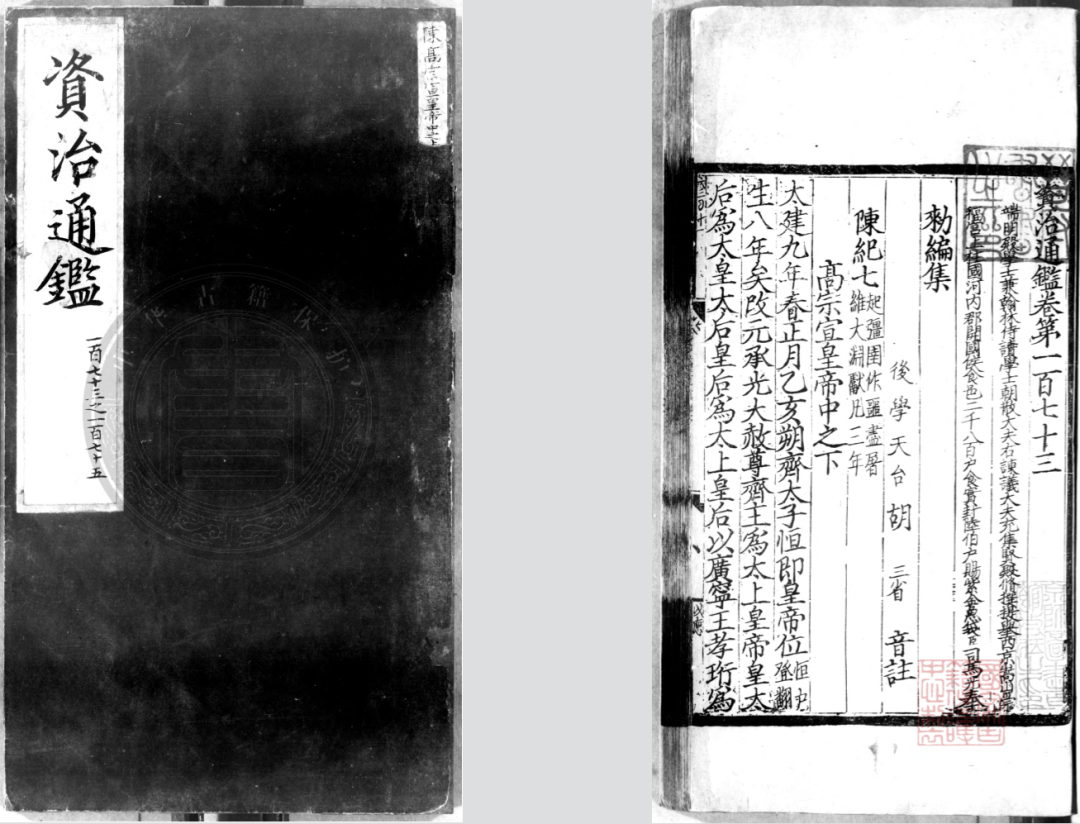 資治通鑑
一百七十三之一百七十五
陳高宗宣皇帝中之下
資治通鑑卷第一百七十三
端明殿學士兼翰林侍讀學士朝散大夫右諫議大夫充集賢殿修撰提舉西京嵩山崇
福宮上柱國河內郡開國侯食邑二千八百戶食實封陸伯戶賜紫金魚袋臣司馬光奉
勑編集
後學天台胡三省音註
陳紀七起彊圉作噩盡屠
維大淵獻凡三年
高宗宣皇帝中之下
太建九年春正月乙亥朔齊太子恒即皇帝位恒史
登翻
生八年矣改元承光大赦尊齊主為太上皇帝皇太
后為太皇太后皇后為太上皇后以廣寧王孝珩為